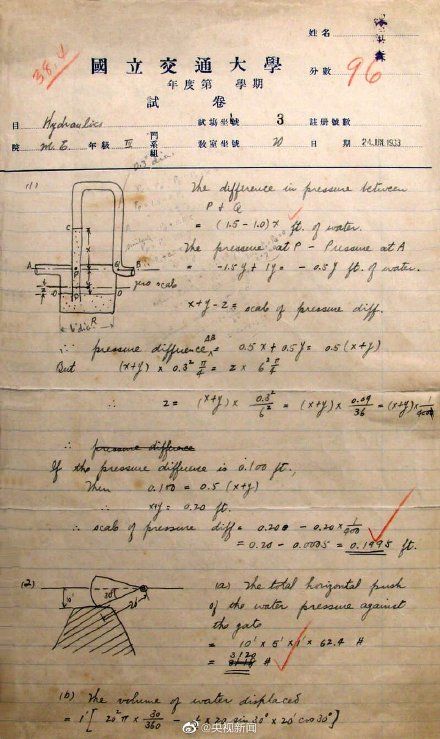 姓名
國立交通大學
38. ↓
年度第 學期
分數 96
試卷
目 Hydraulics 試場坐號 3 註册號數
院 M.E. 年級 IV 門系組 教室坐號 20 日期 24 JUN 1933
(1) The difference in pressure between
P & Q
= (1.5 - 1.0) x ft. of water.
The pressure at P - Pressure at A
= -1.5y + 1y = - 0.5y ft. of water.
zero scale
x+y-z = scale of pressure diff.
R
6" dia.
∴ pressure difference AB = 0.5x + 0.5y = 0.5 (x+y)
But (x+y) x 0.3² π/4 = z x 6² π/4
∴ z = (x+y) x 0.3²/6² = (x+y) x 0.09/36 = (x+y) x 1/400
∴ pressure difference
If the pressure difference is 0.100 ft.,
Then 0.100 = 0.5 (x+y)
∴ x+y = 0.20 ft.
∴ scale of pressure diff = 0.200 - 0.20 x 1/400
= 0.20 - 0.0005 = 0.1995 ft.
(2) 10' 30° 20' (a) The total horizontal push
of the water pressure against
the gate
= 10' x 5' x 1' x 62.4 #
= 3,120 #
(b) The volume of water displaced
= 1' [ 20² π x 30/360 - ½ x 20 sin 30° x 20' cos 30° ]
@央视新闻